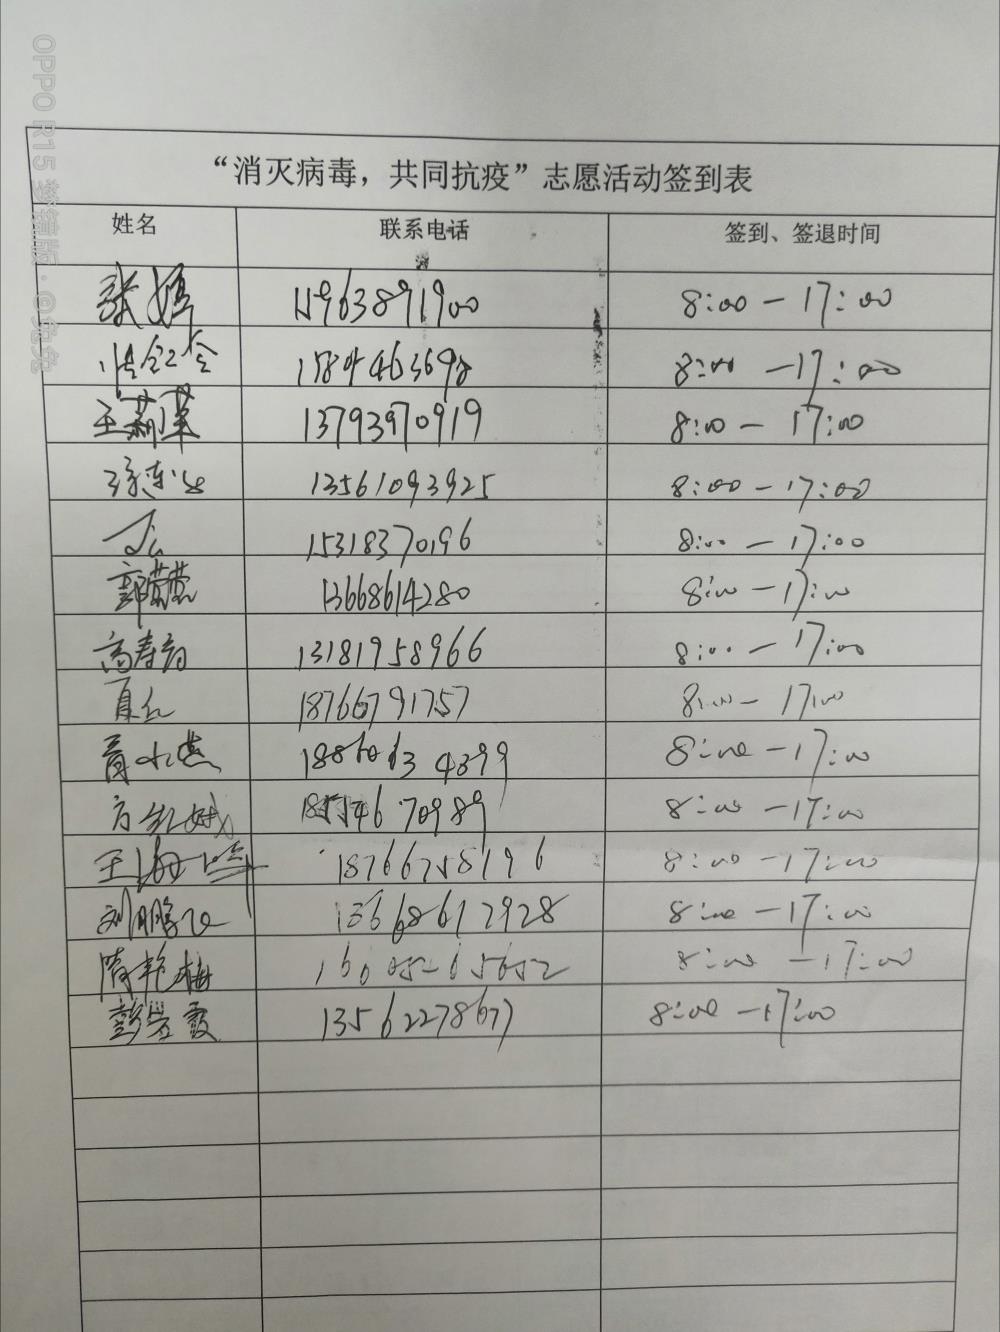 OPPO R15 梦镜版·@兔兔
“消灭病毒，共同抗疫”志愿活动签到表
姓名 联系电话 签到、签退时间
张婷 15963891900 8:00-17:00
8:00-17:00
王莉苹 13793970919 8:00-17:00
13561093925 8:00-17:00
15318370196 8:00-17:00
郭蕊蕊 13668614280 8:00-17:00
高寿韵 13181958966 8:00-17:00
夏红 18766791757 8:00-17:00
4399 8:00-17:00
方红娥 70989 8:00-17:00
王海峰 18766758196 8:00-17:00
刘鹏飞 13668612928 8:00-17:00
隋艳梅 8:00-17:00
彭学霞 13562278677 8:00-17:00